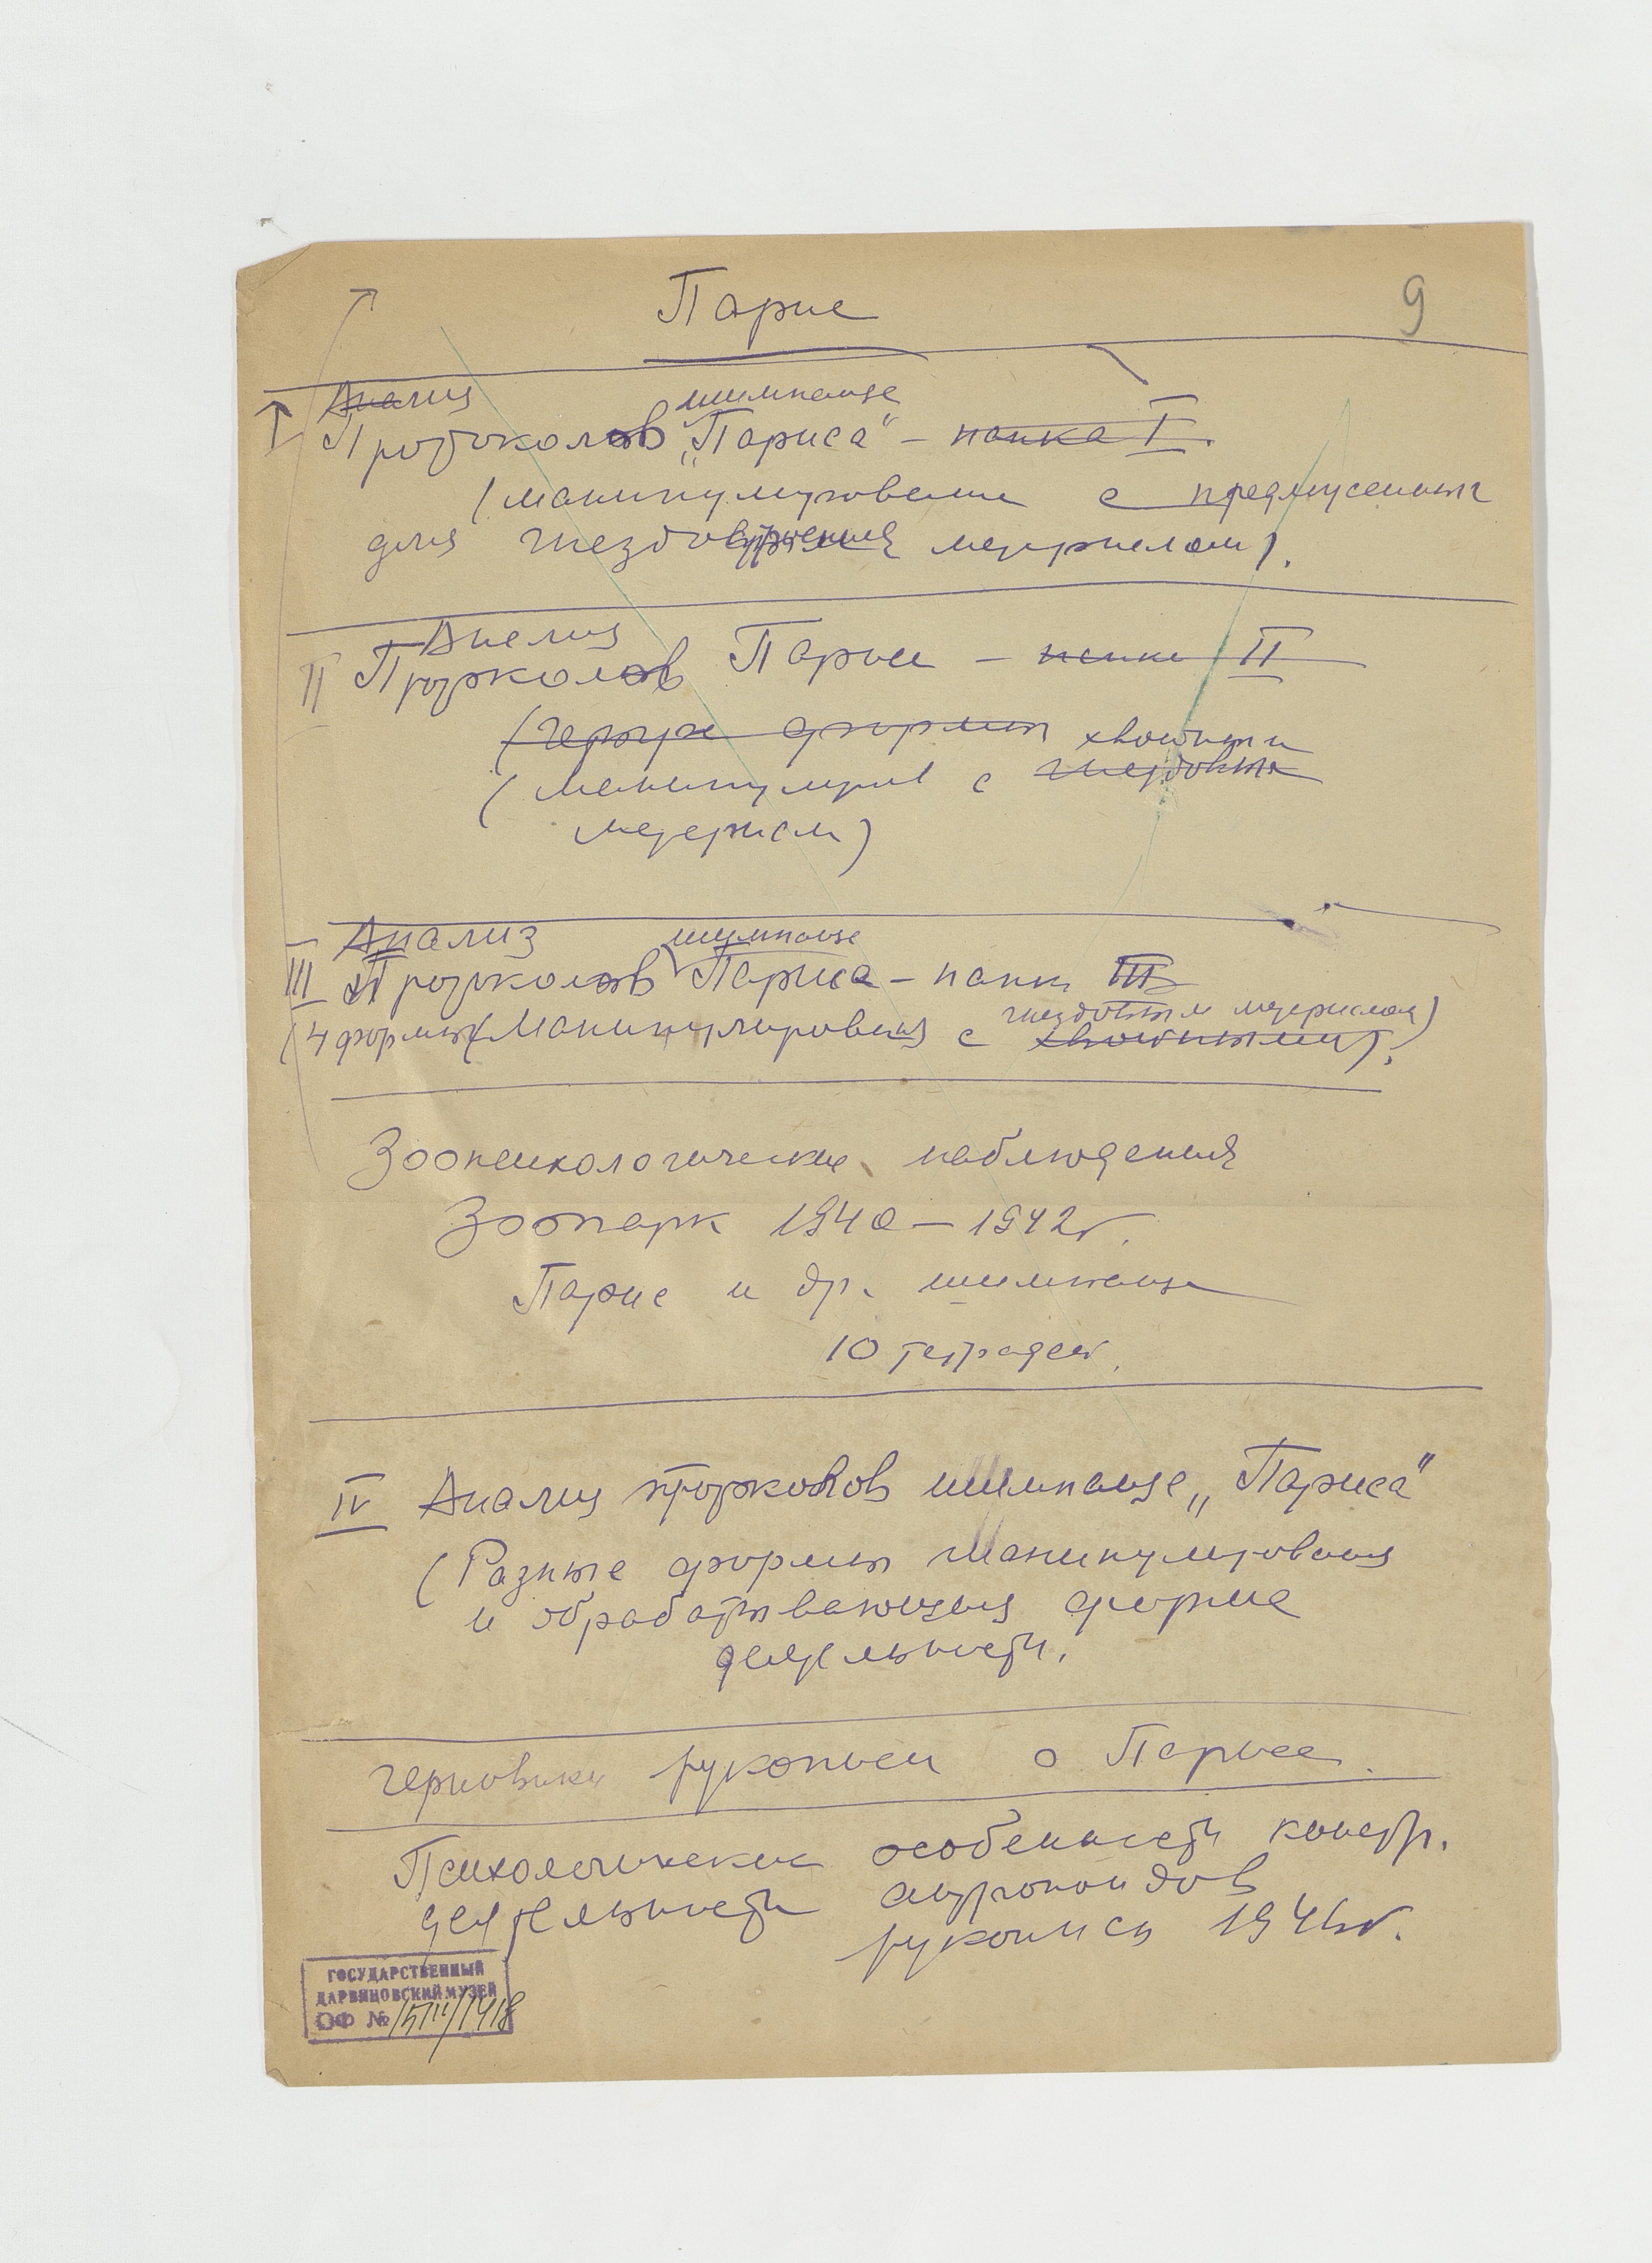 Парис
9
Анализ шимпанзе
I Протоколов „Париса“ – папка I.
(манипулирование с
для гнездостроения материалом).
Анализ
II Протоколов Парис – папка II
(четыре формы хвостатыми
(манипулиров с гнездовым
материалом)
Анализ шимпанзе
III Протоколов Париса – папка III
гнездовым материалом)
(4 формы (Манипулирования с
Зоопсихологические наблюдения
Зоопарк 1940 – 1942 г.
Парис и др. шимпанзе
10 тетрадей.
IV Анализ протоколов шимпанзе „Париса“
(Разные формы манипулирования
и обрабатывающая форма
деятельности.
Черновики рукописи о Парисе.
Психологические особенности констр.
деятельности антропоидов
рукопись
ГОСУДАРСТВЕННЫЙ
ДАРВИНОВСКИЙ МУЗЕЙ
ОФ №